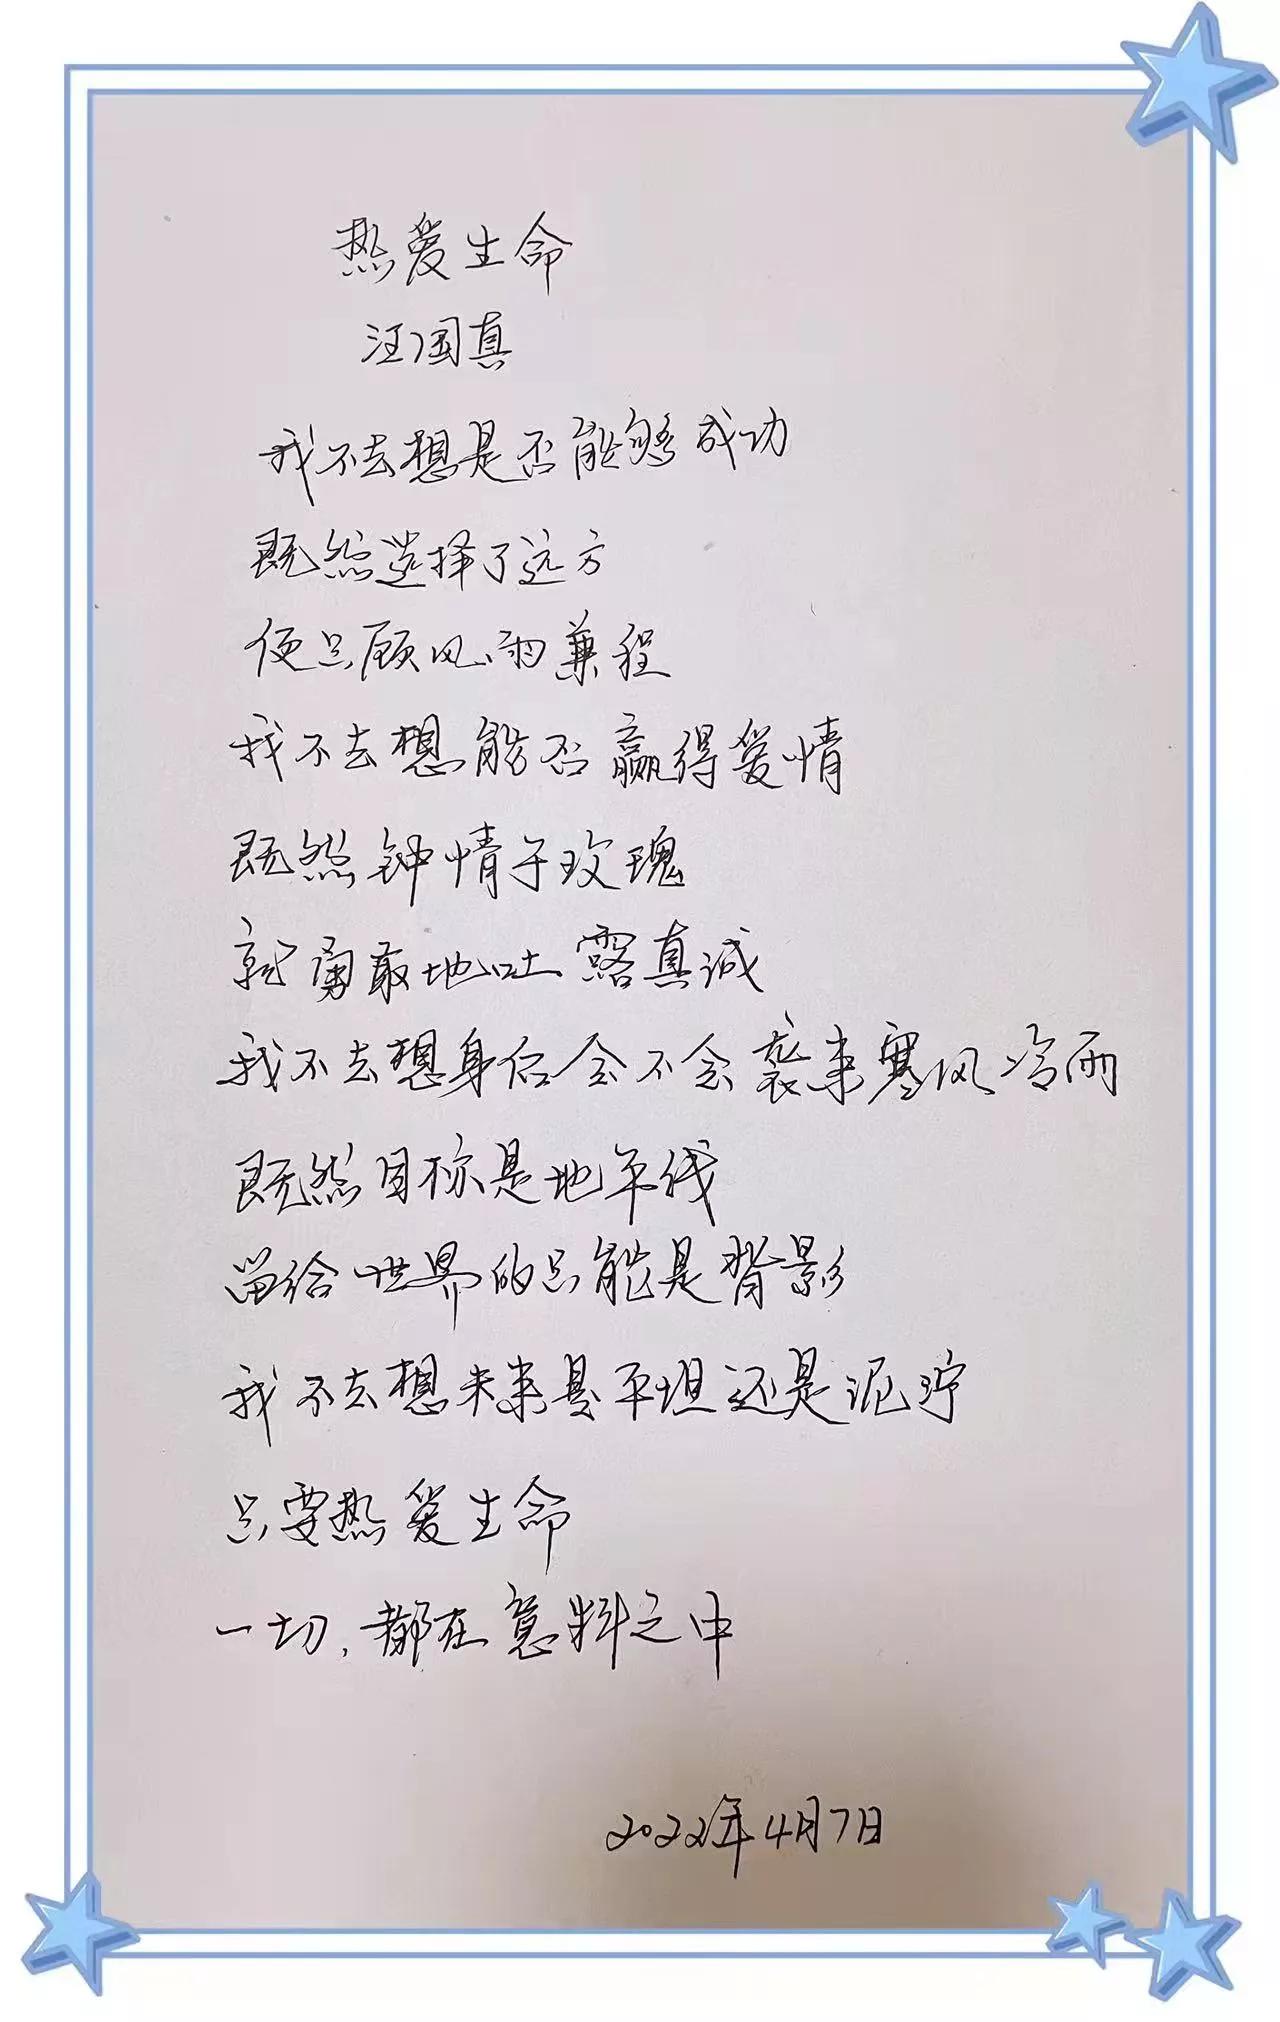 热爱生命
汪国真
我不去想是否能够成功
既然选择了远方
便只顾风雨兼程
我不去想能否赢得爱情
既然钟情于玫瑰
就勇敢地吐露真诚
我不去想身后会不会袭来寒风冷雨
既然目标是地平线
留给世界的只能是背影
我不去想未来是平坦还是泥泞
只要热爱生命
一切,都在意料之中
2022年4月7日